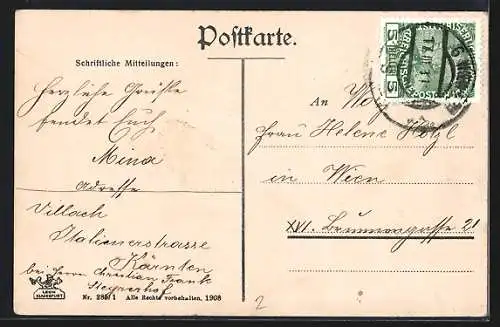 Postkarte.
Schriftliche Mitteilungen:
Herzliche Grüsse
sendet Euch
Mina
Adresse
Villach
Italienerstrasse
Kärnten
bei Herrn Christian Frank
Steyrerhof
An
Frau Helene
in Wien
XVI. Brunnengasse 21
Nr. 285/1 Alle Rechte vorbehalten, 1908
2